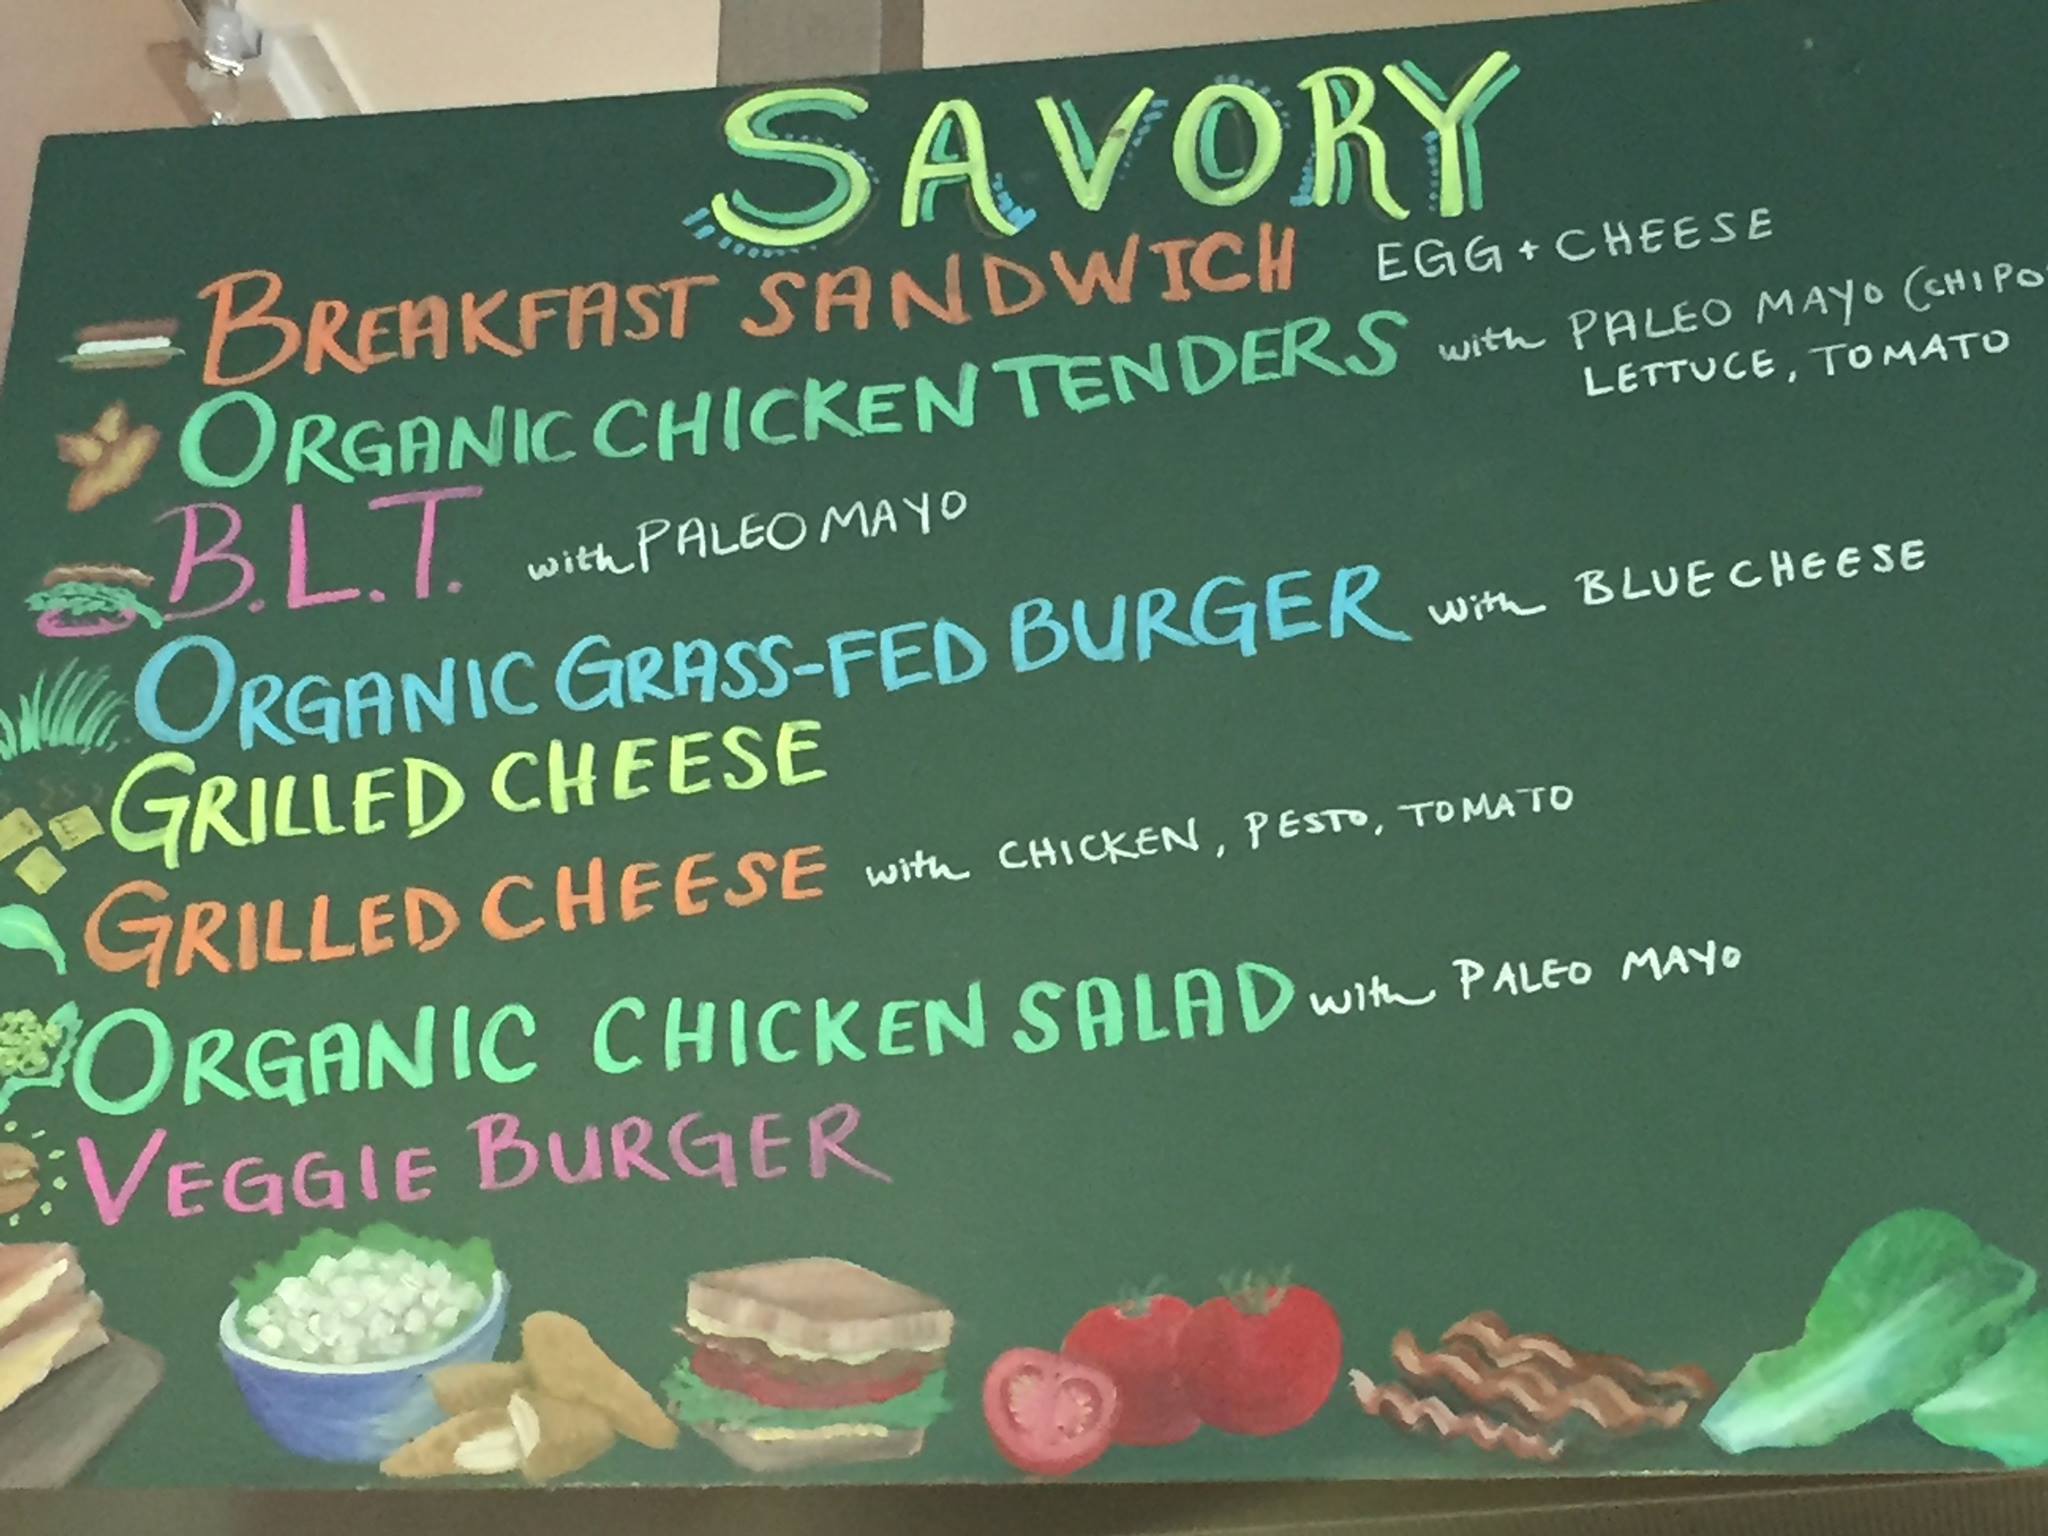 SAVORY
BREAKFAST SANDWICH EGG + CHEESE
ORGANIC CHICKEN TENDERS with PALEO MAYO (CHIPO
LETTUCE, TOMATO
B.L.T. with PALEO MAYO
ORGANIC GRASS-FED BURGER with BLUE CHEESE
GRILLED CHEESE
GRILLED CHEESE with CHICKEN, PESTO, TOMATO
ORGANIC CHICKEN SALAD with PALEO MAYO
VEGGIE BURGER